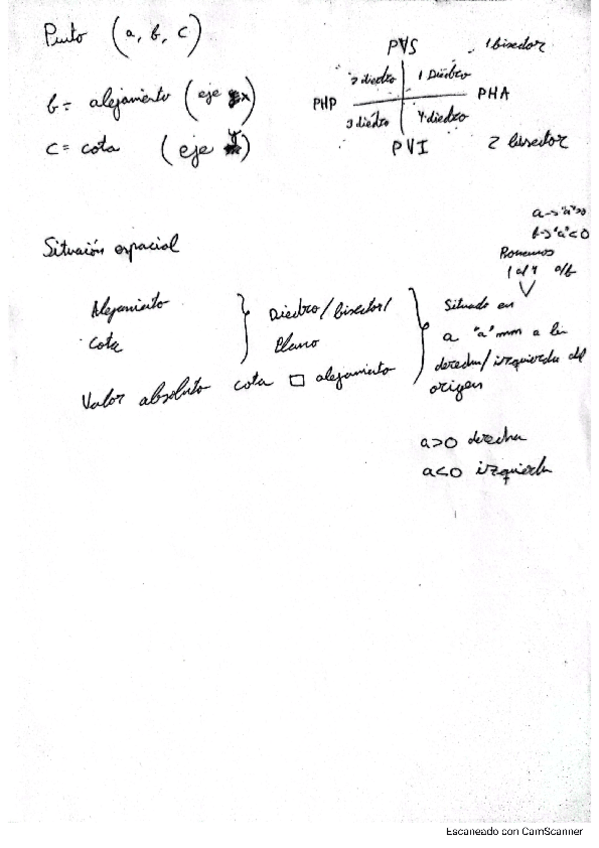 Punto (a, b, c)
b = alejamiento (eje x)
c = cota (eje y)
PVS
1 bisector
2 diedro 1 Diedro
PHP PHA
3 diedro 4 diedro
PVI
2 bisector
Situación espacial
a → "a" > 0
b → "a" < 0
Ponemos
Alejamiento
Cota
Diedro / bisector /
Plano
Situado en
a "a" mm a la
derecha / izquierda del
origen
Valor absoluto cota □ alejamiento
a>0 derecha
a<0 izquierda
Escaneado con CamScanner